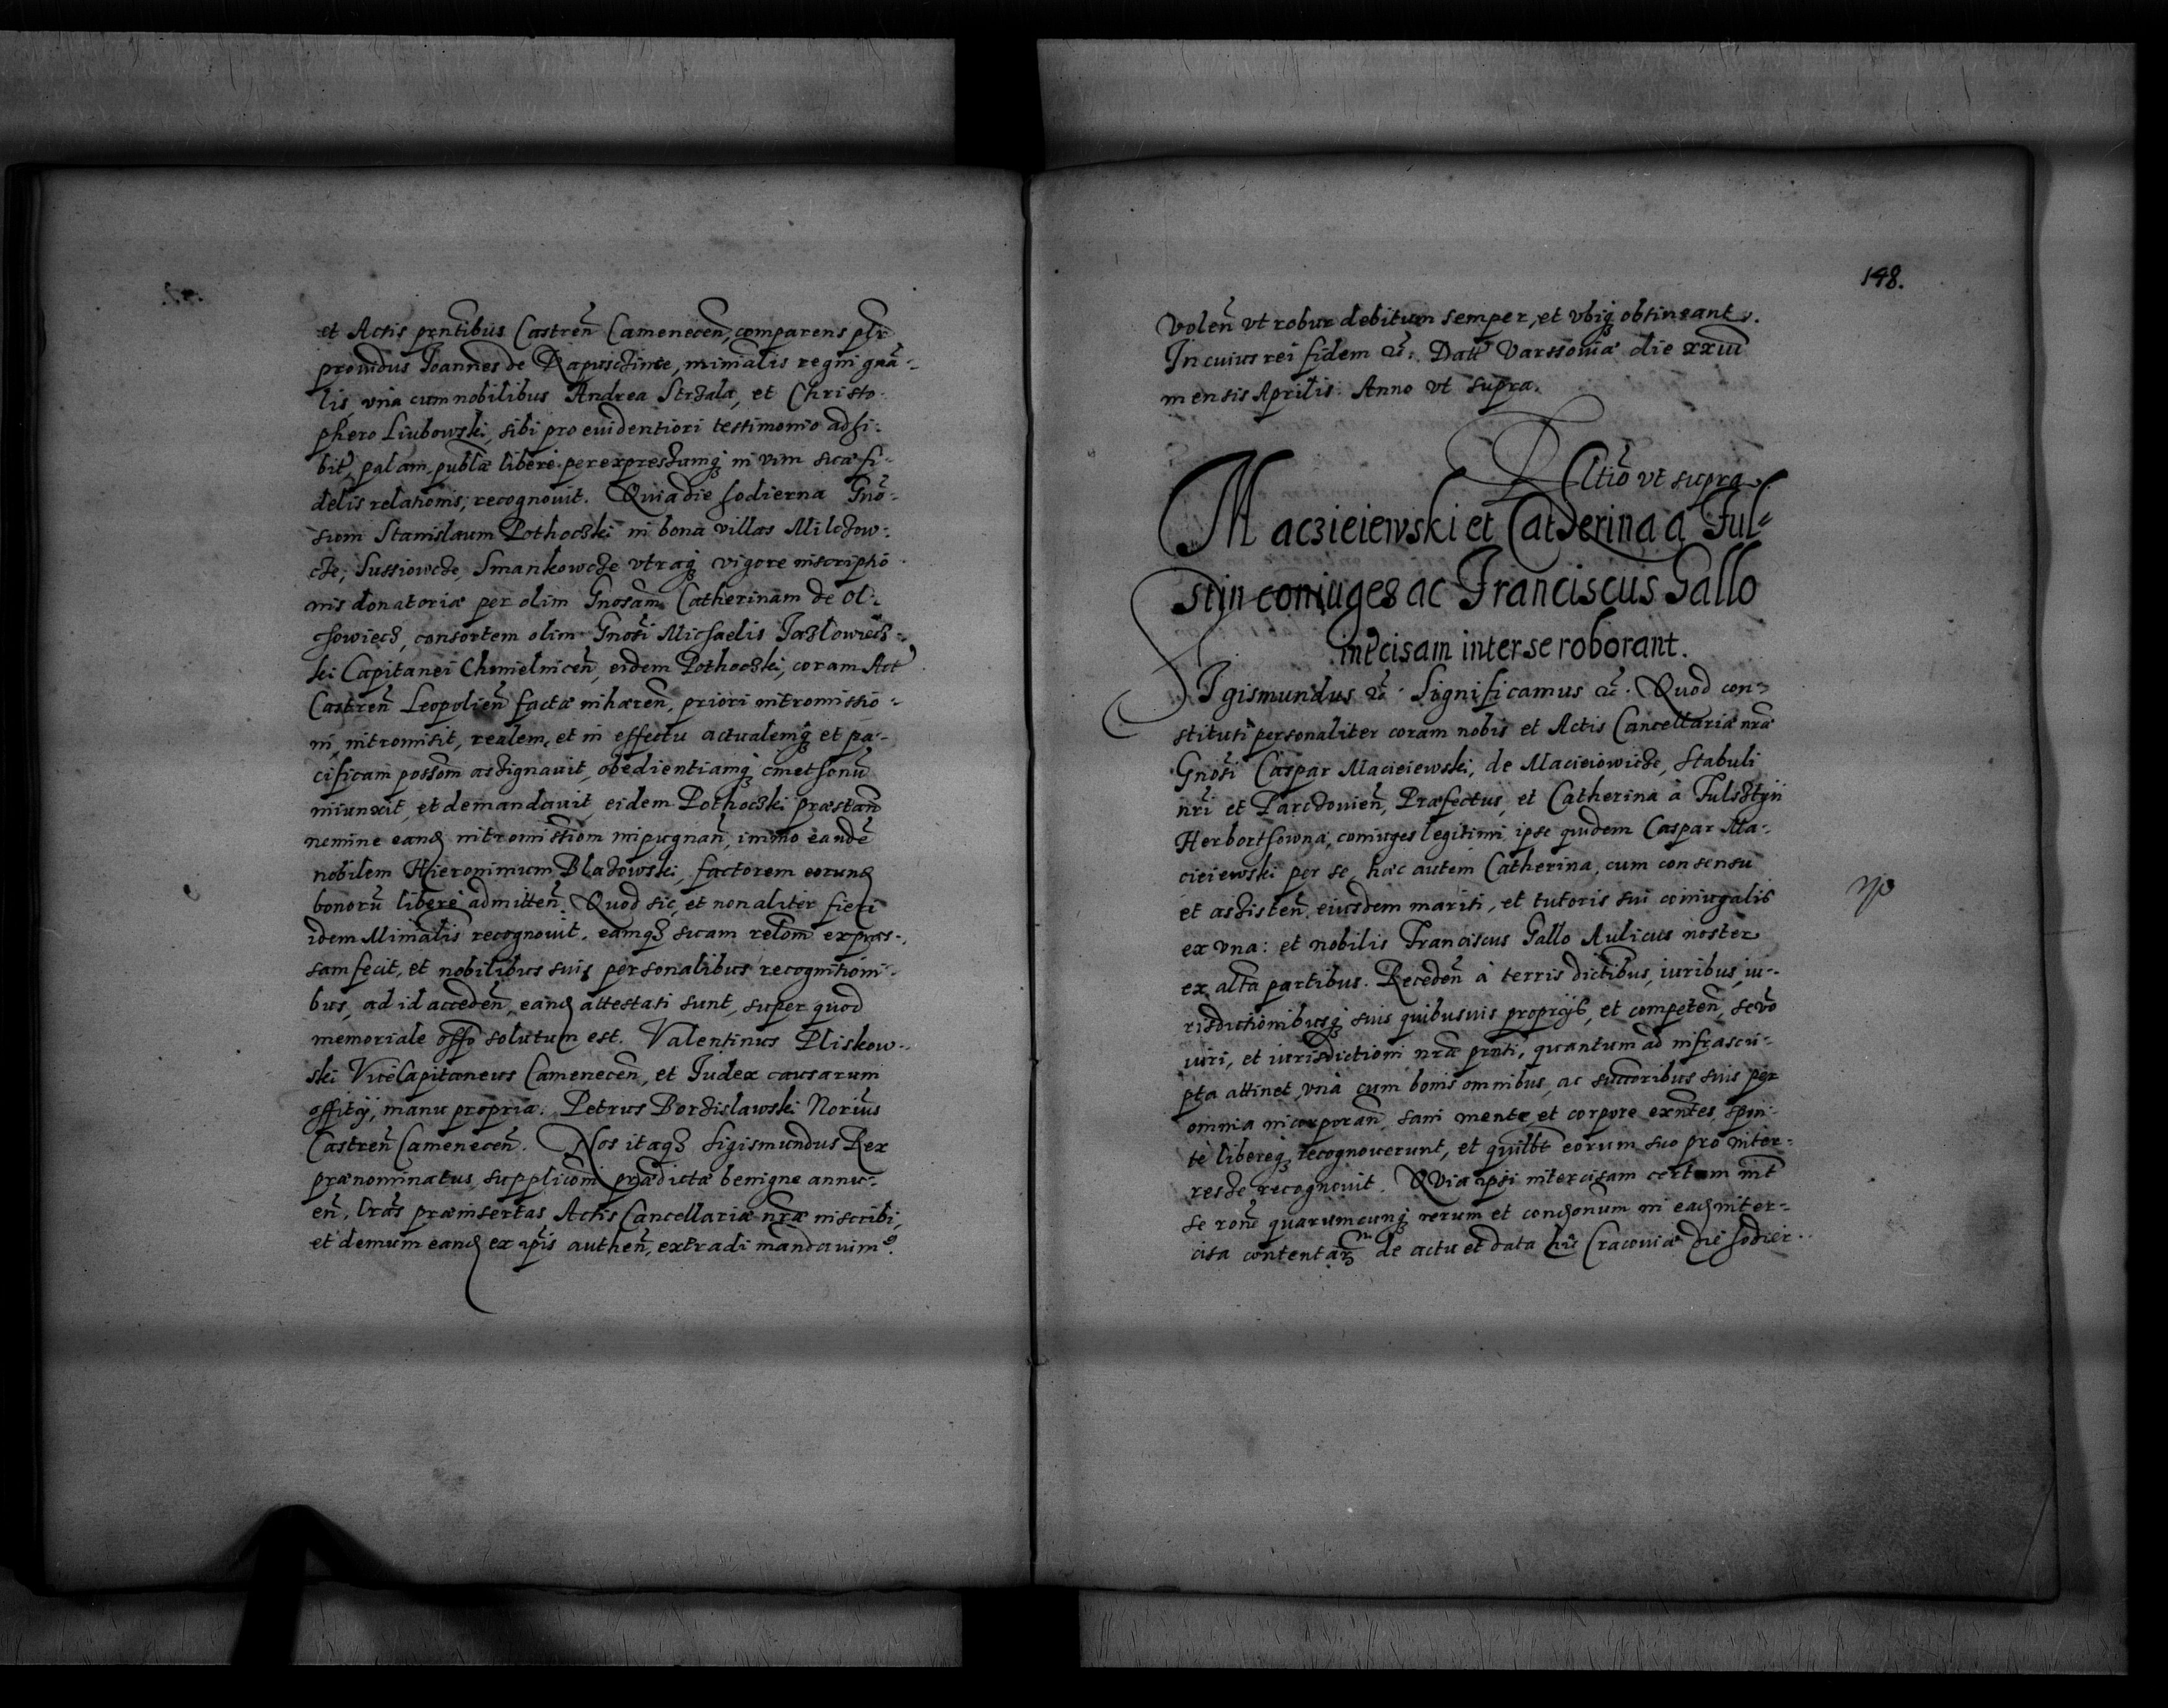 et Actis prntibus Castren̄ Camenecen̄, comparens plr
prouidus Joannes de Rapusczince, minialis regni gnā-
lis, vna cum nobilibus Andrea Strzala, et Christo-
phero Liubowski, sibi pro euidentiori testimonio adhi-
bit, palam publæ libere per expressumq in vim suæ fi-
delis relationis, recognouit. Quia die hodierna Gnō-
sum Stanislaum Pothoczki in bona villas Milczow-
cze, Sussiowcze, Smankowcze vtraq vigore inscriptio
nis donatoriæ per olim Gnosam Catherinam de Ol-
chowiecz, consortem olim Gnosi Michaelis Jazlowiecz-
ki Capitanei Chmielnicen̄, eidem Pothoczki, coram Act
Castren̄ Leopolien̄ factæ inhæren̄, priori intromissio-
ni, intromisit, realem, et in effectu actualemq et pa-
cificam possom assignauit, obedientiamq cmethonū
iniunxit, et demandauit, eidem Pothoczki præstan̄
nemine eand intromissiom impugnan̄, immo eandē
nobilem Hieronimum Blazowski, factorem eorund
bonorū liberè admitten̄. Quod sic, et non aliter fieri
idem Minialis recognouit, eamq suam relom expres-
sam fecit, et nobilibus suis personalibus recognitioni-
bus, ad id acceden̄, eand attestati sunt, super quod
memoriale offo solutum est. Valentinus Pliskow-
ski ViceCapitaneus Camenecen̄, et Judex causarum
offitij, manu propria. Petrus Borzislawski Norius
Castren̄ Camenecen̄. Nos itaq Sigismundus Rex
prænominatus, supplicōni prædictæ benigne annu-
en̄, lras præinsertas Actis Cancellariæ nræ inscribi,
et demum eand ex ipis authen̄, extradi mandauim9.
148.
Volen̄ vt robur debitum semper, et vbiq obtineant.
In cuius rei fidem &c. Datt Varssouiæ die xxiii
mensis Aprilis. Anno vt supra.
Rltio vt supra.
Maczieiewski et Catherina a Ful-
styn coniuges ac Franciscus Gallo
intcisam inter se roborant.
Sigismundus &c. Significamus &c. Quod con-
stituti personaliter coram nobis et Actis Cancellariæ nræ
Gnosi Caspar Macieiewski, de Macieiowicze, Stabuli
nri et Parczouien̄, Præfectus, et Catherina à Fulsztyn
Herborthowna, coniuges legitimi ipse quidem Caspar Ma-
cieiewski per se, hæc autem Catherina, cum consensu
et assisten̄ eiusdem mariti, et tutoris sui coniugalis
ex vna: et nobilis Franciscus Gallo Aulicus noster
ex alta partibus. Receden̄ à terris dictibus, iuribus, iu-
risdictionibusq suis quibusuis proprijs, et competen̄, se vō
iuri, et iurisdictioni nræ prnti, quantum ad infrascri-
pta attinet, vnà cum bonis omnibus, ac succoribus suis per
omnia incorporan̄, sani mente et corpore exntes, spon-
te libereq recognouerunt, et quilbt eorum suo pro inter-
resze recognouit. Quia ipsi intercisam certam int
se ronē quarumcunq rerum et condonum in ead inter-
cisa contentar de actu et data hic Cracouiæ die hodier-